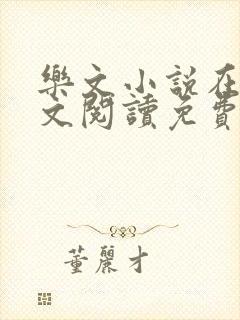 樂文小說在
文閱讀免費
董麗才